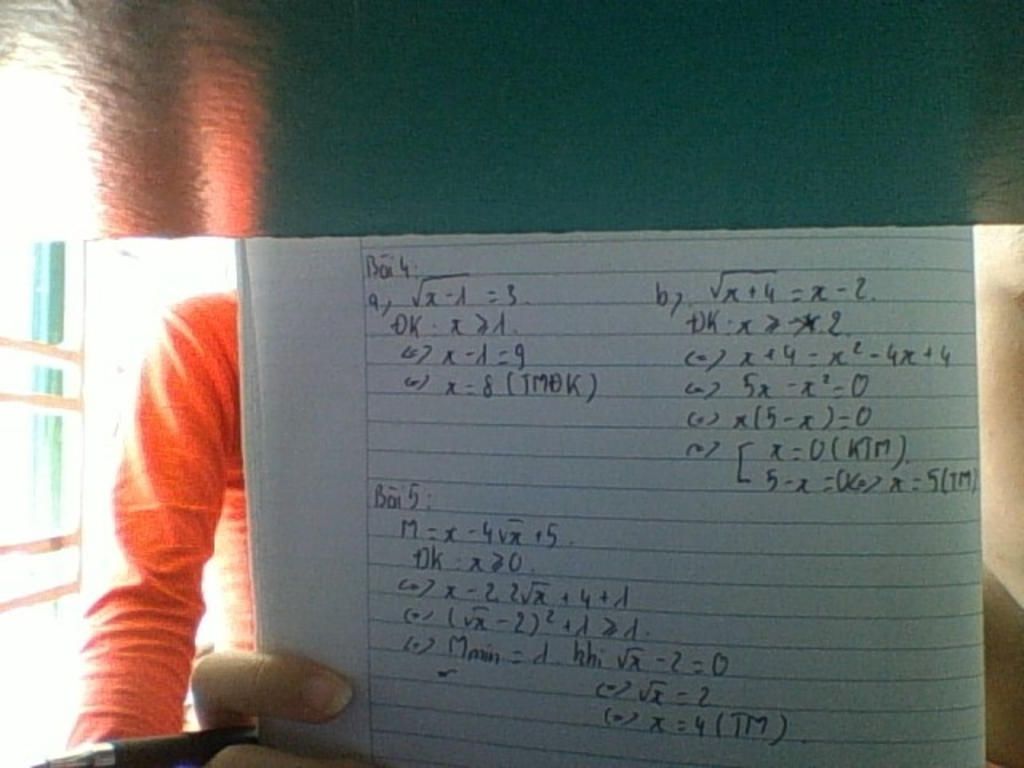 Bài 4:
a, √x-1 = 3.
ĐK: x ⩾ 1.
<=> x-1 = 9
<=> x = 8 (TMĐK)
b, √x+4 = x-2.
ĐK: x ⩾ 2.
<=> x+4 = x² - 4x + 4
<=> 5x - x² = 0
<=> x(5-x) = 0
<=> [ x = 0 (KTM).
5-x = 0 <=> x = 5 (TM)
Bài 5:
M = x - 4√x + 5.
ĐK: x ⩾ 0.
<=> x - 2.2√x + 4 + 1
<=> (√x - 2)² + 1 ⩾ 1.
<=> Mmin = 1 khi √x - 2 = 0
<=> √x = 2
<=> x = 4 (TM)